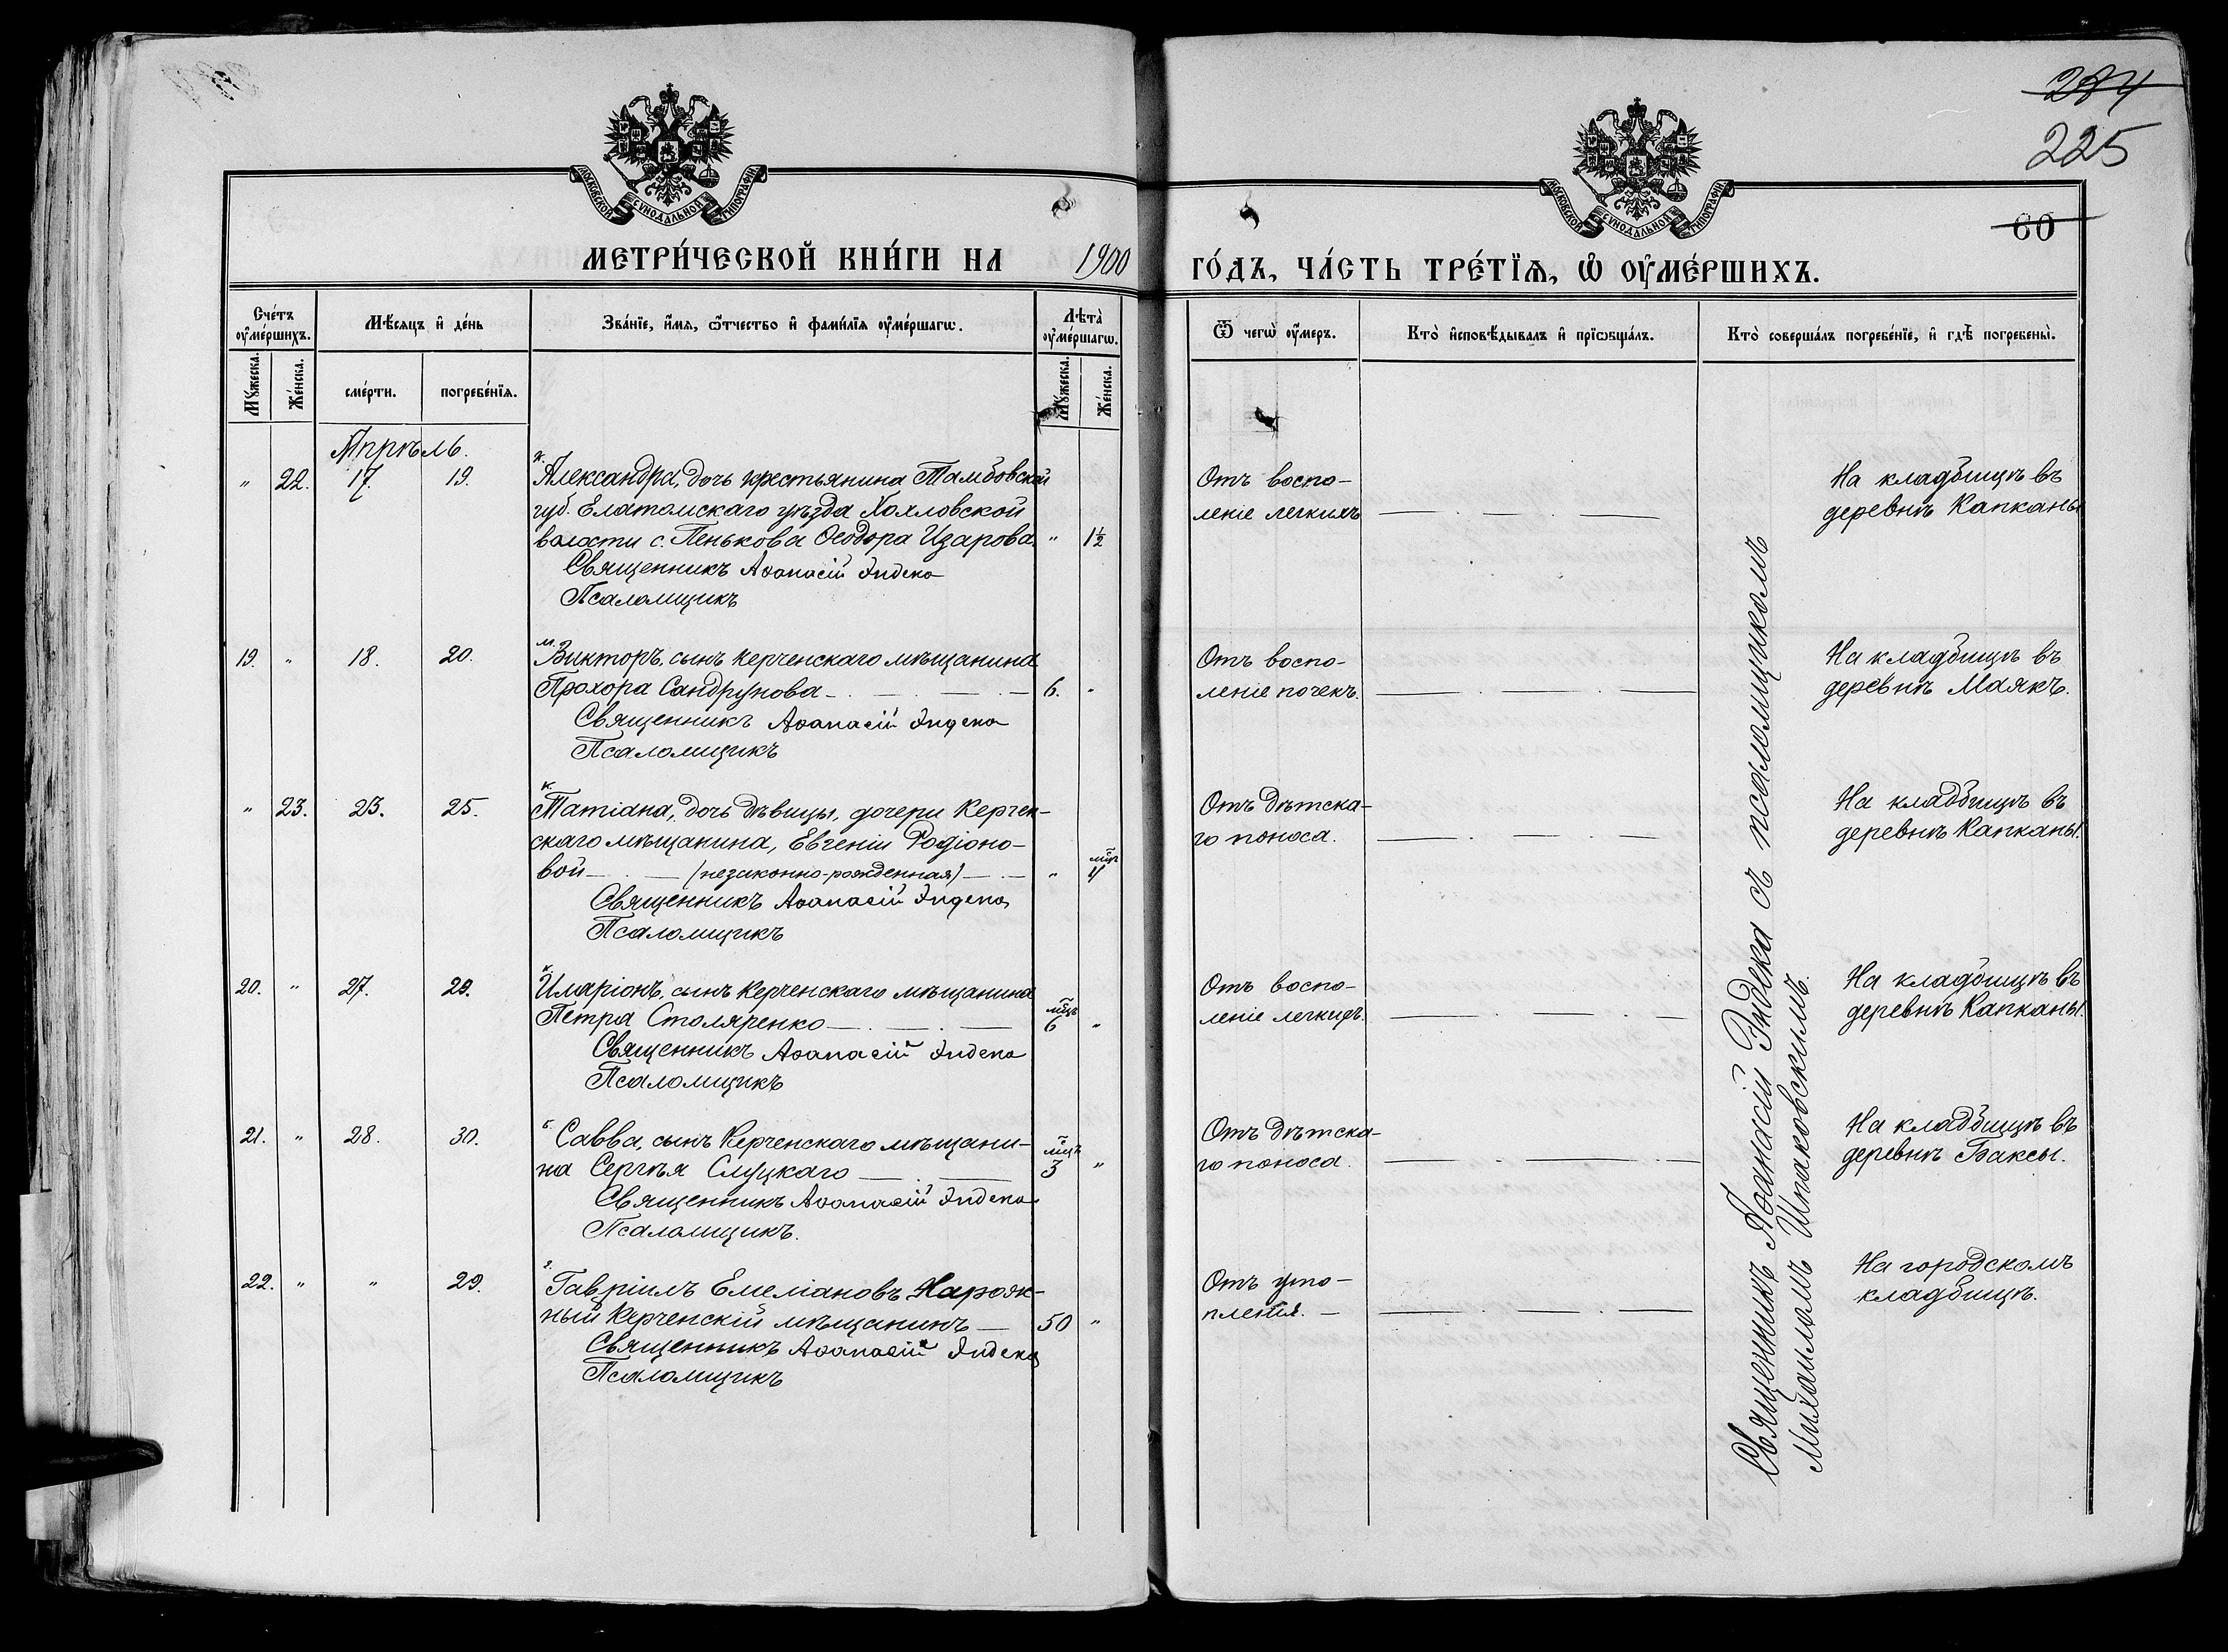 284
225
60
МОСКОВСКОЙ СѴНОДАЛЬНОЙ ТИПОГРАФІИ
МОСКОВСКОЙ СѴНОДАЛЬНОЙ ТИПОГРАФІИ
МЕТРИ́ЧЕСКОЙ КНИ́ГИ НА 1900 ГО́ДЪ, ЧА́СТЬ ТРЕ́ТІѦ, Ѡ҆ ОУ҆МЕ́РШИХЪ.
Сче́тъ оу҆ме́ршихъ.
Мѣ́сяцъ и҆ де́нь
Зва́нїе, и҆́мѧ, ѻ҆́тчество и҆ фами́лїѧ оу҆ме́ршагѡ.
Лѣ́та оу҆ме́ршагѡ.
Ѿ чегѡ̀ оу҆́меръ.
Кто̀ и҆сповѣ́дывалъ и҆ прїѡбща́лъ.
Кто̀ соверша́лъ погребе́нїе, и҆ гдѣ̀ погребены̀.
Мꙋ́жеска.
Же́нска.
сме́рти.
погребе́нїѧ.
Мꙋ́жеска.
Же́нска.
Апрѣль.
" 22. 17. 19. Александра, дочь крестьянина Тамбовской
губ. Елатомскаго уѣзда Хохловской
волости с. Пенькова Ѳеодора Изарова. " 1½
Священникъ Аѳанасій Индека
Псаломщикъ
Отъ воспо-
леніе легкихъ
На кладбищѣ въ
деревнѣ Капканы
19. " 18. 20. Викторъ, сынъ Керченскаго мѣщанина
Прохора Сандрунова 6. "
Священникъ Аѳанасій Индека
Псаломщикъ
Отъ воспо-
леніе почекъ.
На кладбищѣ въ
деревнѣ Маякъ.
" 23. 23. 25. Татіана, дочь дѣвицы, дочери Керчен-
скаго мѣщанина, Евгеніи Родіоно-
вой (незаконно-рожденная) " мѣс. 4
Священникъ Аѳанасій Индека
Псаломщикъ
Отъ дѣтска-
го поноса.
На кладбищѣ въ
деревнѣ Капканы.
20. " 27. 29. Иларіонъ, сынъ Керченскаго мѣщанина
Петра Столяренко мѣсц. 6 "
Священникъ Аѳанасій Индека
Псаломщикъ
Отъ воспо-
леніе легкихъ.
На кладбищѣ въ
деревнѣ Капканы.
21. " 28. 30. Савва, сынъ Керченскаго мѣщани-
на Сергѣя Слуцкаго мѣсц. 3 "
Священникъ Аѳанасій Индека
Псаломщикъ.
Отъ дѣтска-
го поноса.
На кладбищѣ въ
деревнѣ Баксы.
22. " " 29. Гавріилъ Емеліановъ Нарож-
ный Керченскій мѣщанинъ 50 "
Священникъ Аѳанасій Индека
Псаломщикъ
Отъ уто-
пленія.
На городскомъ
кладбищѣ.
Священникъ Аѳанасій Индека съ псаломщикомъ
Михаиломъ Шпаковскимъ.